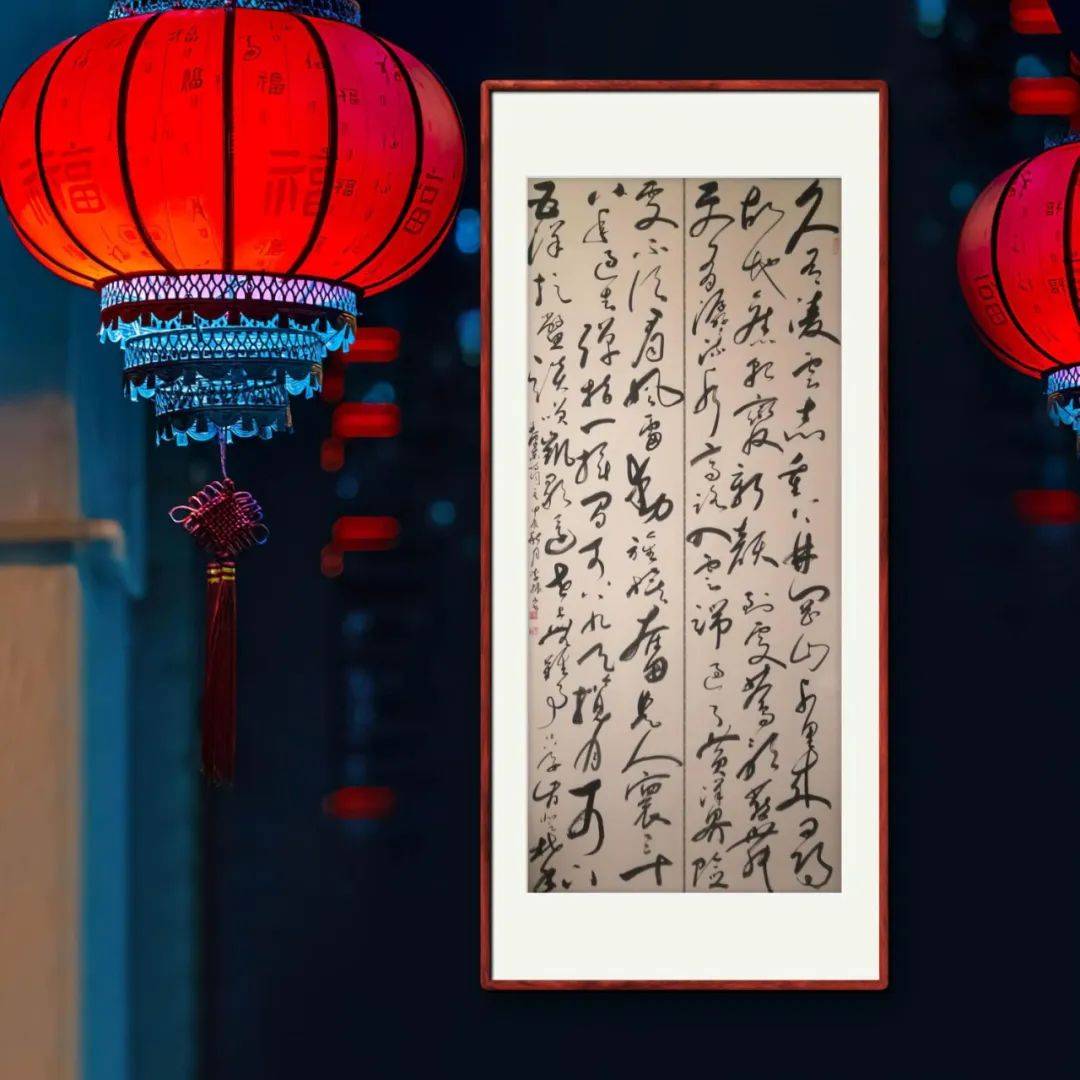 福
福
久有凌云志重上井冈山千里来寻
故地旧貌变新颜到处莺歌燕舞
更有潺潺流水高路入云端过了黄洋界险
处不须看风雷动旌旗奋是人寰三十
八年过去弹指一挥间可上九天揽月可下
五洋捉鳖谈笑凯歌还世上无难事只要肯登攀
甲辰秋月